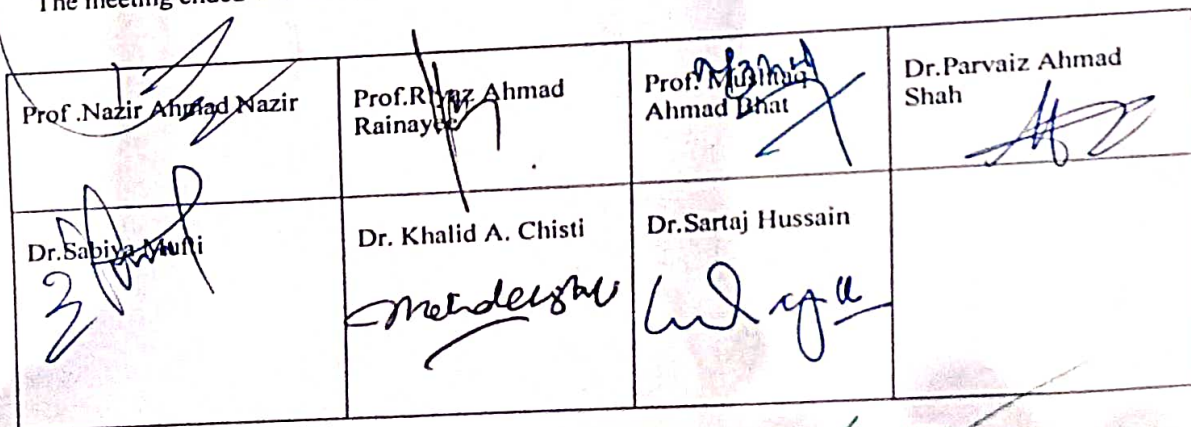 The meeting ended
Prof .Nazir Ahmad Nazir
Prof.Riyaz Ahmad
Rainayee
Prof. Mushtaq
Ahmad Bhat
Dr.Parvaiz Ahmad
Shah
Dr.Sabiya Mufti
Dr. Khalid A. Chisti
Dr.Sartaj Hussain